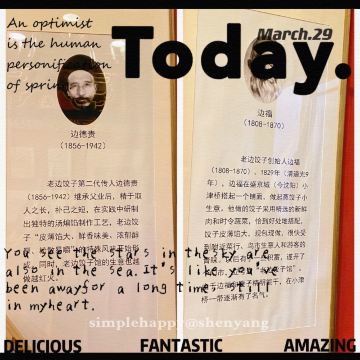 An optimist
is the human
personification
of spring
March.29
Today.
边德贵
(1856-1942)
老边饺子第二代传人边德贵
(1856-1942)继承父业后，精于取
人之长，补己之短，在实践中研制
出独特的汤煸馅制作工艺，
子"皮薄馅大，鲜香味美，浓郁
边福
(1808-1870)
老边饺子创始人边福
(1808-1870)，1829年(清道光9
年)，边福在盛京城(今沈阳)小
津桥搭起一个铺面，做起蒸饺子小
生意。他做的饺子采用精选的新鲜
肉和时令蔬菜，恰到好处地搭配，
You see the stars in the sky are
also in the sea. It's like you've
been away for a long time, still
in my heart.
simplehappy@shenyang
DELICIOUS FANTASTIC AMAZING